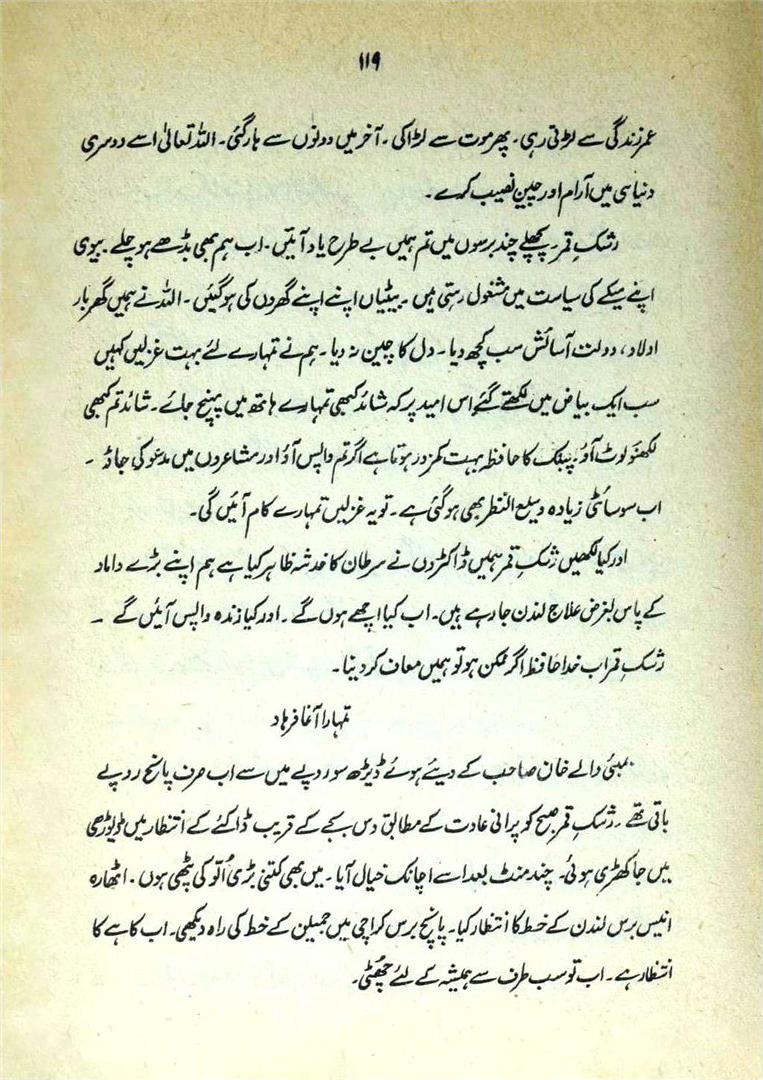 ۱۱۹
عمر زندگی سے لڑتی رہی۔ پھر موت سے لڑا کی۔ آخر میں دونوں سے ہار گئی۔ اللہ تعالیٰ اسے دوسری
دنیا ہی میں آرام اور چین نصیب کرے۔
رشکِ قمر۔ پچھلے چند برسوں میں تم ہمیں بے طرح یاد آئیں۔ اب ہم بھی بڈھے ہو چلے۔ بیوی
اپنے میکے کی سیاست میں مشغول رہتی ہیں۔ بیٹیاں اپنے اپنے گھروں کی ہو گئیں۔ اللہ نے ہمیں گھر بار
اولاد، دولت آسائش سب کچھ دیا۔ دل کا چین نہ دیا۔ ہم نے تمہارے لئے بہت غزلیں کہیں
سب ایک بیاض میں لکھتے گئے اس امید پر کہ شائد کبھی تمہارے ہاتھ میں پہنچ جائے۔ شائد تم کبھی
لکھنؤ لوٹ آؤ۔ پبلک کا حافظہ بہت کمزور ہوتا ہے اگر تم واپس آؤ اور مشاعروں میں مدعو کی جاؤ ۔
اب سوسائٹی زیادہ وسیع النظر بھی ہو گئی ہے۔ تو یہ غزلیں تمہارے کام آئیں گی۔
اور کیا لکھیں رشکِ قمر ہمیں ڈاکٹروں نے سرطان کا خدشہ ظاہر کیا ہے ہم اپنے بڑے داماد
کے پاس بغرض علاج لندن جا رہے ہیں۔ اب کیا اچھے ہوں گے ۔ اور کیا زندہ واپس آئیں گے ۔
رشکِ قمر اب خدا حافظ اگر ممکن ہو تو ہمیں معاف کر دینا۔
تمہارا آغا فرہاد
بمبئی والے خان صاحب کے دیئے ہوئے ڈیڑھ سو روپے میں سے اب صرف پانچ روپے
باقی تھے۔ رشکِ قمر صبح کو پرانی عادت کے مطابق دس بجے کے قریب ڈاکئے کے انتظار میں ڈیوڑھی
میں جا کھڑی ہوئی۔ چند منٹ بعد اسے اچانک خیال آیا۔ میں بھی کتنی بڑی اُلّو کی پٹھی ہوں۔ اٹھارہ
انیس برس لندن کے خط کا انتظار کیا۔ پانچ برس کراچی میں جمیلن کے خط کی راہ دیکھی۔ اب کاہے کا
انتظار ہے۔ اب تو سب طرف سے ہمیشہ کے لئے چھُٹی۔